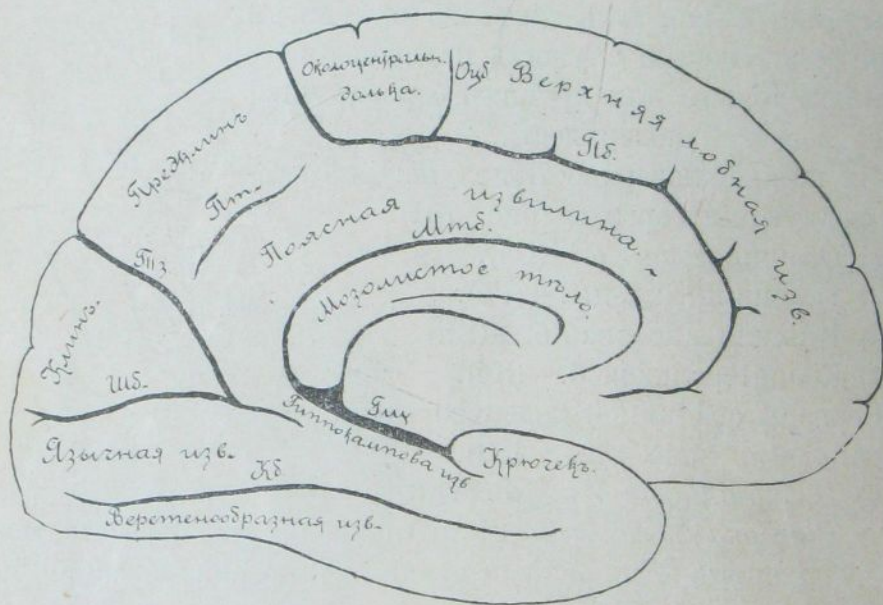 Околоцентральн.
долька.
Оцб
Верхняя лобная изв.
Пб.
Предклинъ
Пт.
Поясная извилина.
Мтб.
Мозолистое тѣло.
Клинъ.
Шб.
Гиппокампова изв
Крючекъ.
Язычная изв.
Кб.
Веретенообразная изв.